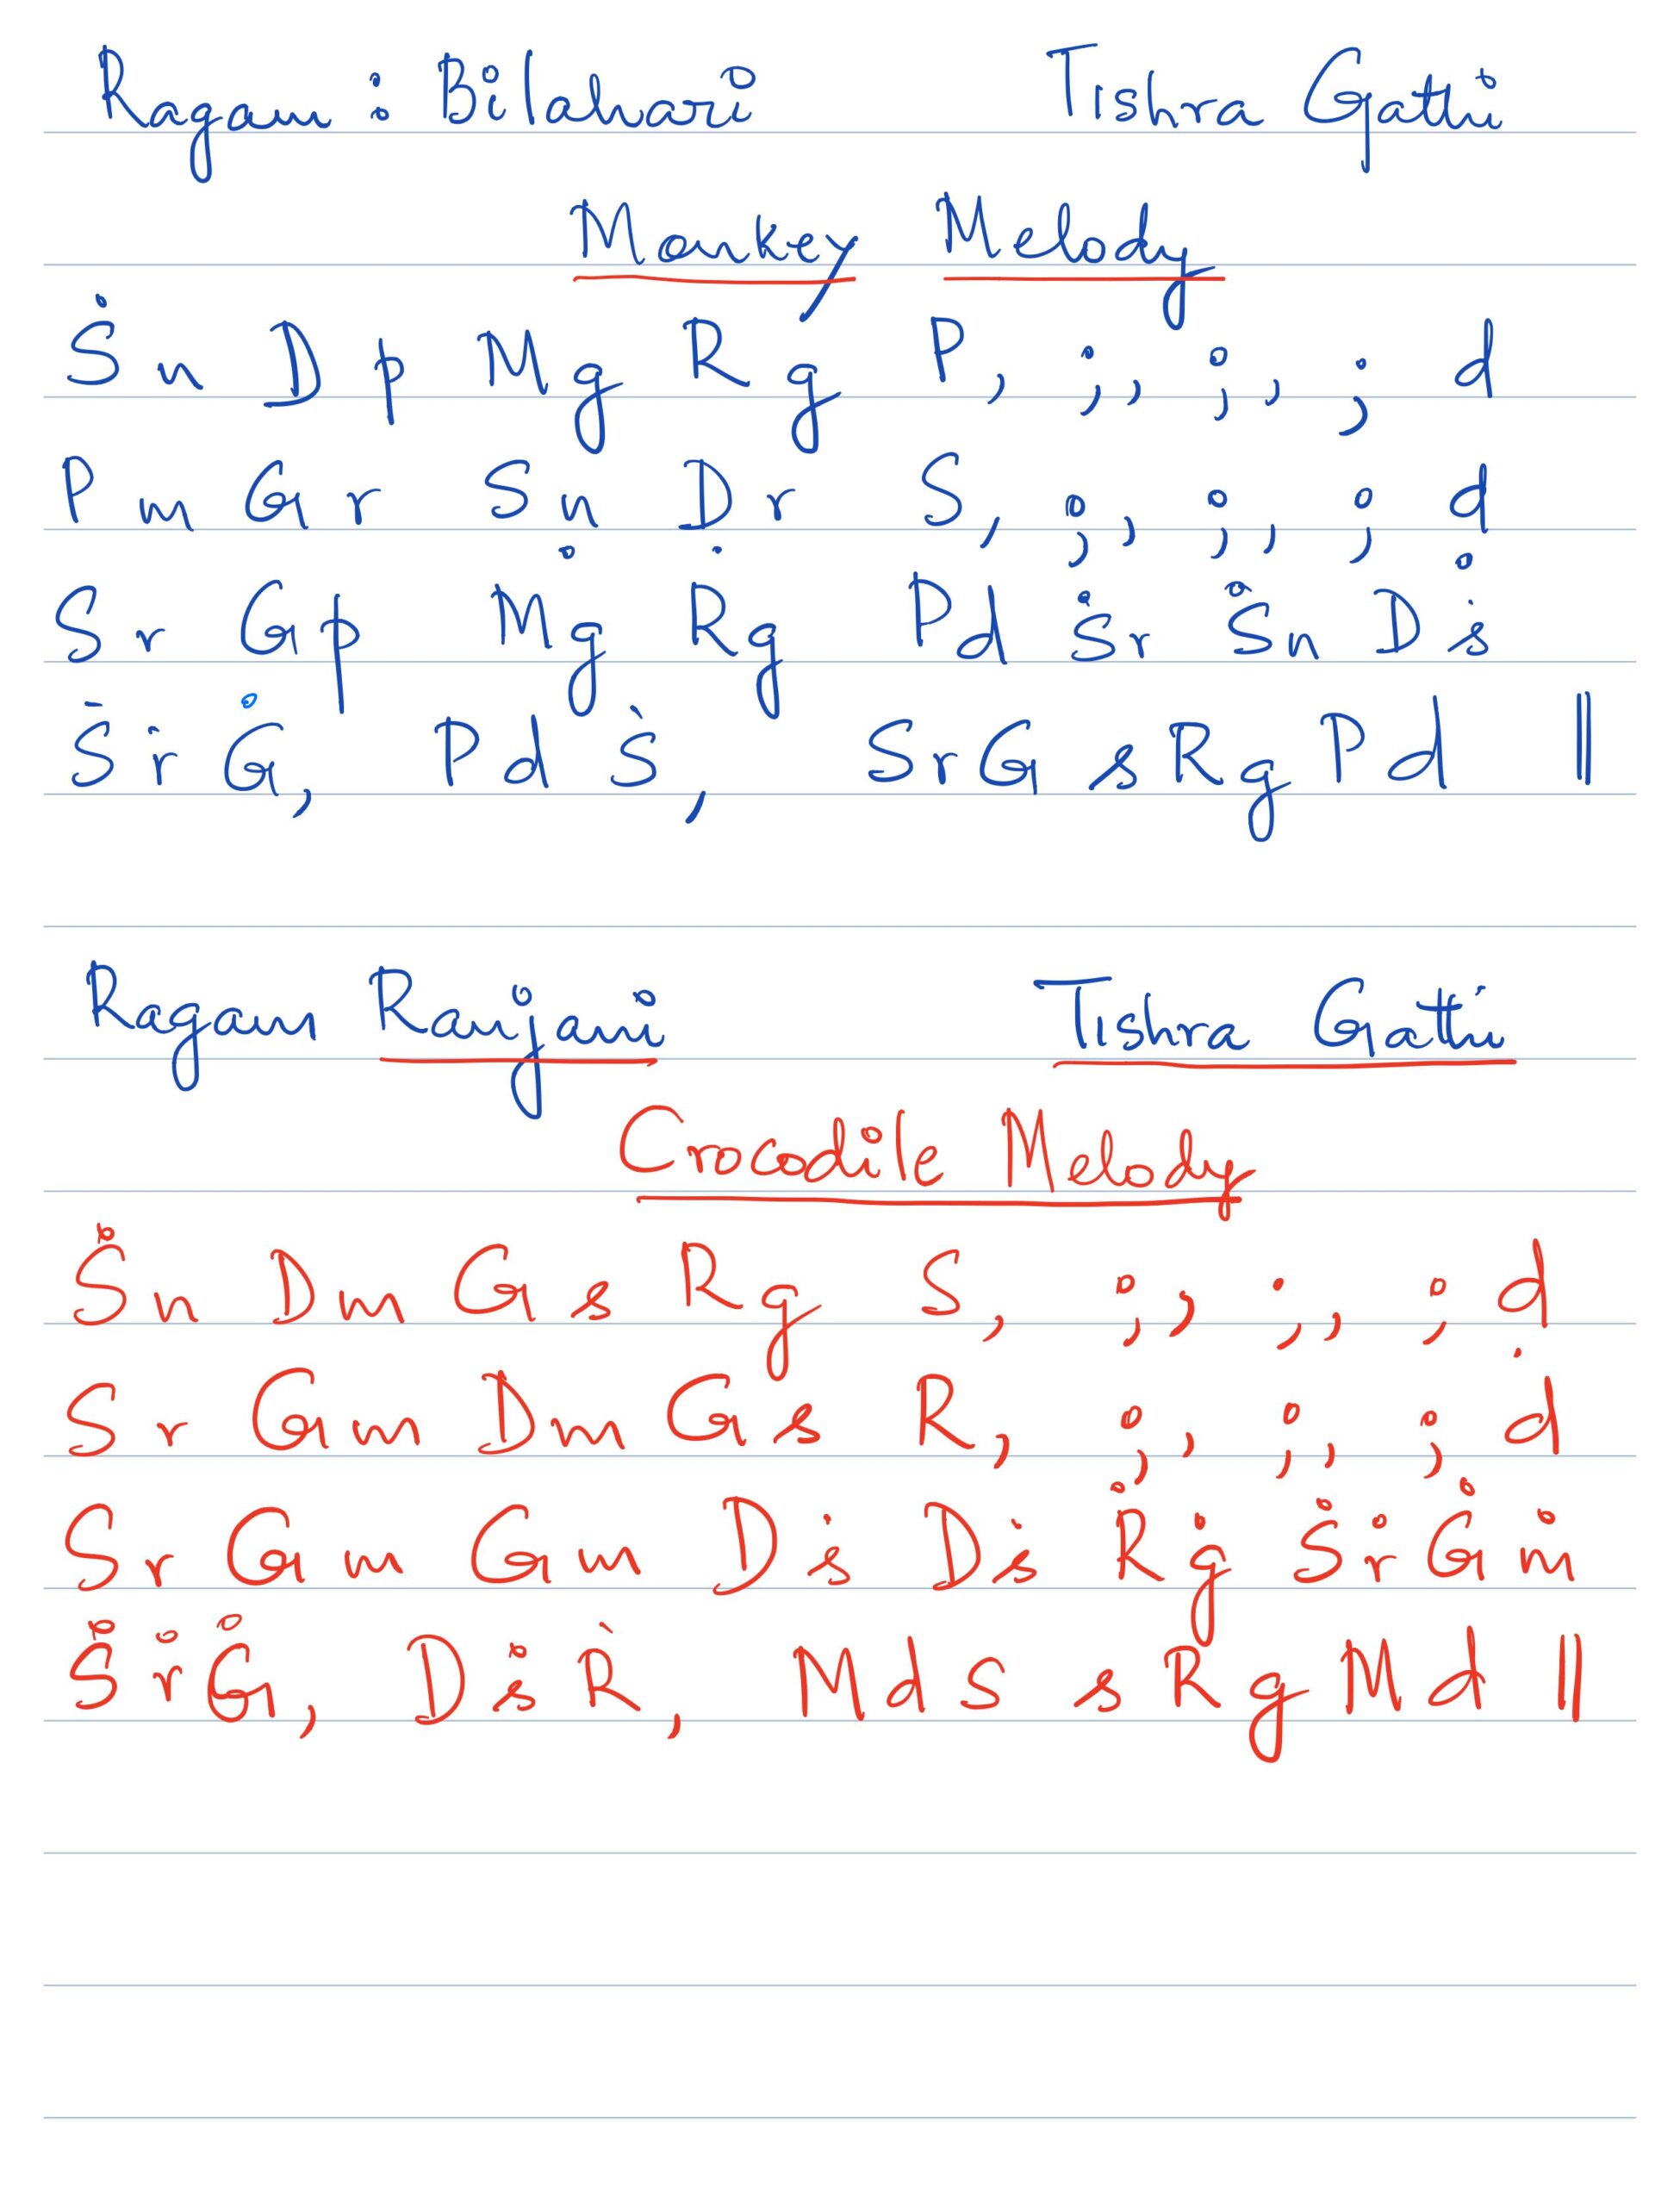 Ragam : Bilahari Tishra Gathi
Monkey Melody
Ṡ n D p M g R g P , ; , ; , ; d
P m G r S ṇ Ḍ r S , ; , ; , ; ḍ
S r G p M g R g P d Ṡ r Ṡ n D ṡ
Ṡ ṙ Ġ , P d Ṡ , S r G s R g P d ||
Ragam Ranjani Tishra Gathi
Crocodile Melody
Ṡ n D m G s R g S , ; , ; , ; ḍ
S r G m D m G s R , ; , ; , ; d
S r G m G m D ṡ D ṡ Ṙ ġ Ṡ ṙ Ġ ṁ
Ṡ ṙ Ġ , D ṡ Ṙ , M d S s R g M d ||